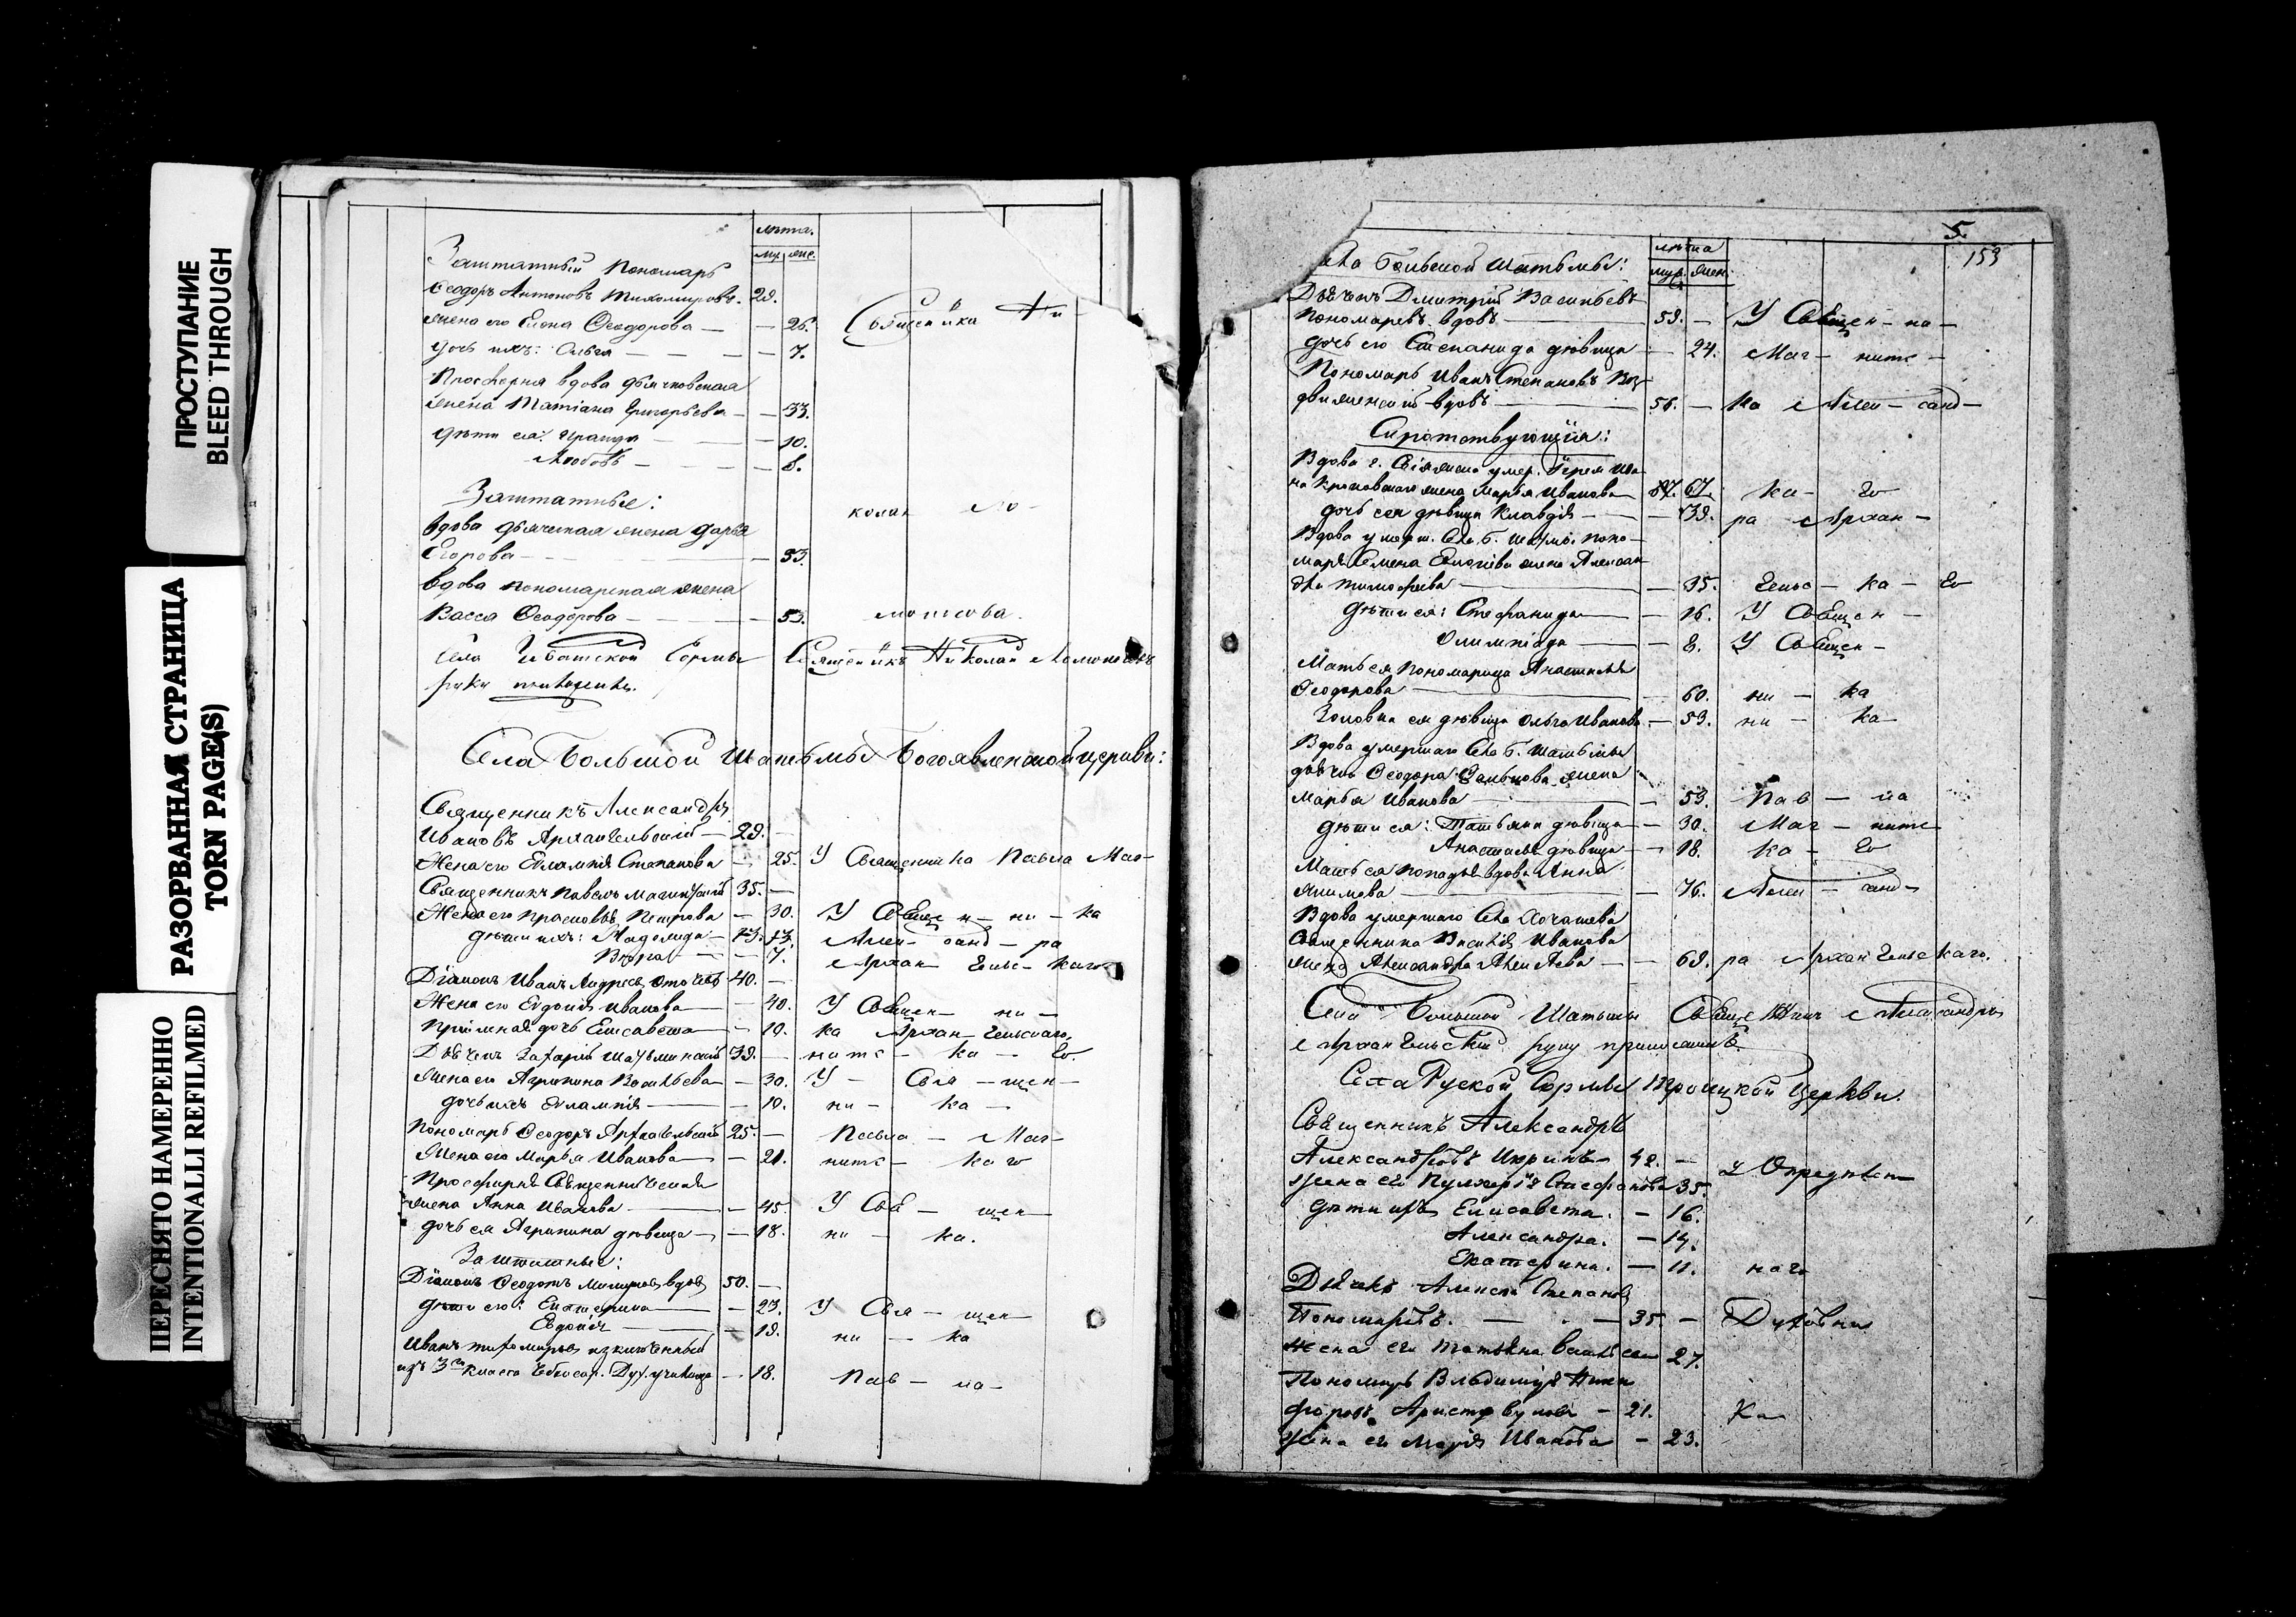 ПРОСТУПАНИЕ
BLEED THROUGH
РАЗОРВАННАЯ СТРАНИЦА
TORN PAGE(S)
ПЕРЕСНЯТО НАМЕРЕННО
INTENTIONALLI REFILMED
лѣта.
му. жс.
Заштатный Пономарь
Ѳеодоръ Антоновъ Тихомировъ. 29.
жена его Елена Ѳеодорова — — 26. Священика Ни-
дочь ихъ: Ольга — — — 7.
Просфирня вдова дьячковская
жена Татiана Григорьева — — 33.
дѣти ея: — 10.
Любовь — — — 8.
Заштатные:
вдова дьяческая жена Дарья колая Ло-
Егорова — — 53.
вдова пономарская жена
Васса Ѳеодорова — — 53. мотсова.
Села Сормы Священикъ Николай
руку приложилъ.
Села Большой Шатьмы Богоявленской церкви:
Священникъ Александръ
Ивановъ Архангельскiй — 29. —
Жена его Евлампiя Степанова — 25. У Священника Павла Маг-
Священникъ Павелъ Магнитскiй 35. —
Жена его Прасковья Петрова — 30. У Священ-ни-ка
дѣти ихъ: Надежда — 13. 13. Алек-санд-ра
Вѣра — — 7. Архан-гельс-каго
Дiаконъ Иванъ Андреев 40. —
Жена его Евдокiя Иванова — 40. У Священ-ни-
Прiемная дочь Елисавета — 10. ка Архан-гельскаго,
Дьячекъ Захарiй Шатьминскiй 39. — нитс-ка-го.
Жена его Агрипина Васильева — 30. У — Свя-щен-
дочь ихъ Евлампiя — — 10. ни-ка-
Пономарь Ѳеодоръ Архангельскiй 25. — Павла-Маг-
Жена его Марья Иванова — 21. нитс-каго
Просфирня Священническая
жена Анна Иванова — 45. У Свя-щен-
дочь ея Агрипина дѣвица — 18. ни-ка.
Заштатные:
Дiаконъ Ѳеодотъ вдовъ 50. —
дѣти его: Екатерина — 23. У Свя-щен-
Евдокiя — — 19. ни-ка
Иванъ Тихомировъ изключенный
изъ 3го класса Чебоксар. Дух. училища — 18. Пав-ла-
5.
153
Села Большой Шатьмы:
лѣта
муж. жен.
Дьячекъ Дмитрiй Васильевъ
Пономаревъ вдовъ — 59. — У Священ-ни-
дочь его Степанида дѣвица — 24. Маг-нитс-
Пономарь Иванъ Степановъ Воз-
движенскiй вдовъ — 56. — ка Алек-санд-
Сиротствующiя:
Вдова умер. Iерея Ива-
на жена Марья Иванова — 67. ка-го
дочь ея дѣвица Клавдiя — — 39. ра Архан-
Вдова умерш. Села Б. Шатьмы поно-
маря Семена жена Алексан-
дра Тимофеева — — 35. гельс-ка-го
дѣти ея: Стефанида — — 16. У Священ-
Олимпiада — — 8. У Священ-
Мать ея пономарица Анастасья
Ѳеодорова — — 60. ни-ка
Золовка ея дѣвица Ольга Иванова — 53. ни-ка-
Вдова умершаго Села Б. Шатьмы
дьячка Ѳеодора жена
Марья Иванова — — 59. Пав-ла
дѣти ея: Татьяна дѣвица — 30. Маг-нитс
Анастасья дѣвица — 18. ка-го
Мать ея попадья вдова Анна
Якимова — — 76. Алек-санд-
Вдова умершаго Села Хочашева
Священника Василiя Иванова
жена Александра Алексѣева — — 69. ра Архангельскаго.
Села Большой Шатьмы Священникъ Александръ
Архангельскiй руку приложилъ.
Села Руской Сормы Троицкой Церкви.
Священникъ Александръ
Александровъ — 42. —
жена его Пулхерiя Стефанова 35. У Опредѣлен
дѣти ихъ Елисавета. — 16.
Александра. — 14.
Екатерина. — 11. наго
Дьячекъ Алексѣй Степановъ
Пономаревъ. — — 35. — Духовни
Жена его Татьяна 27.
Пономарь Владимиръ Ники
форовъ Аристовуловъ — 21. Ка
Жена его Марiя Иванова — 23.